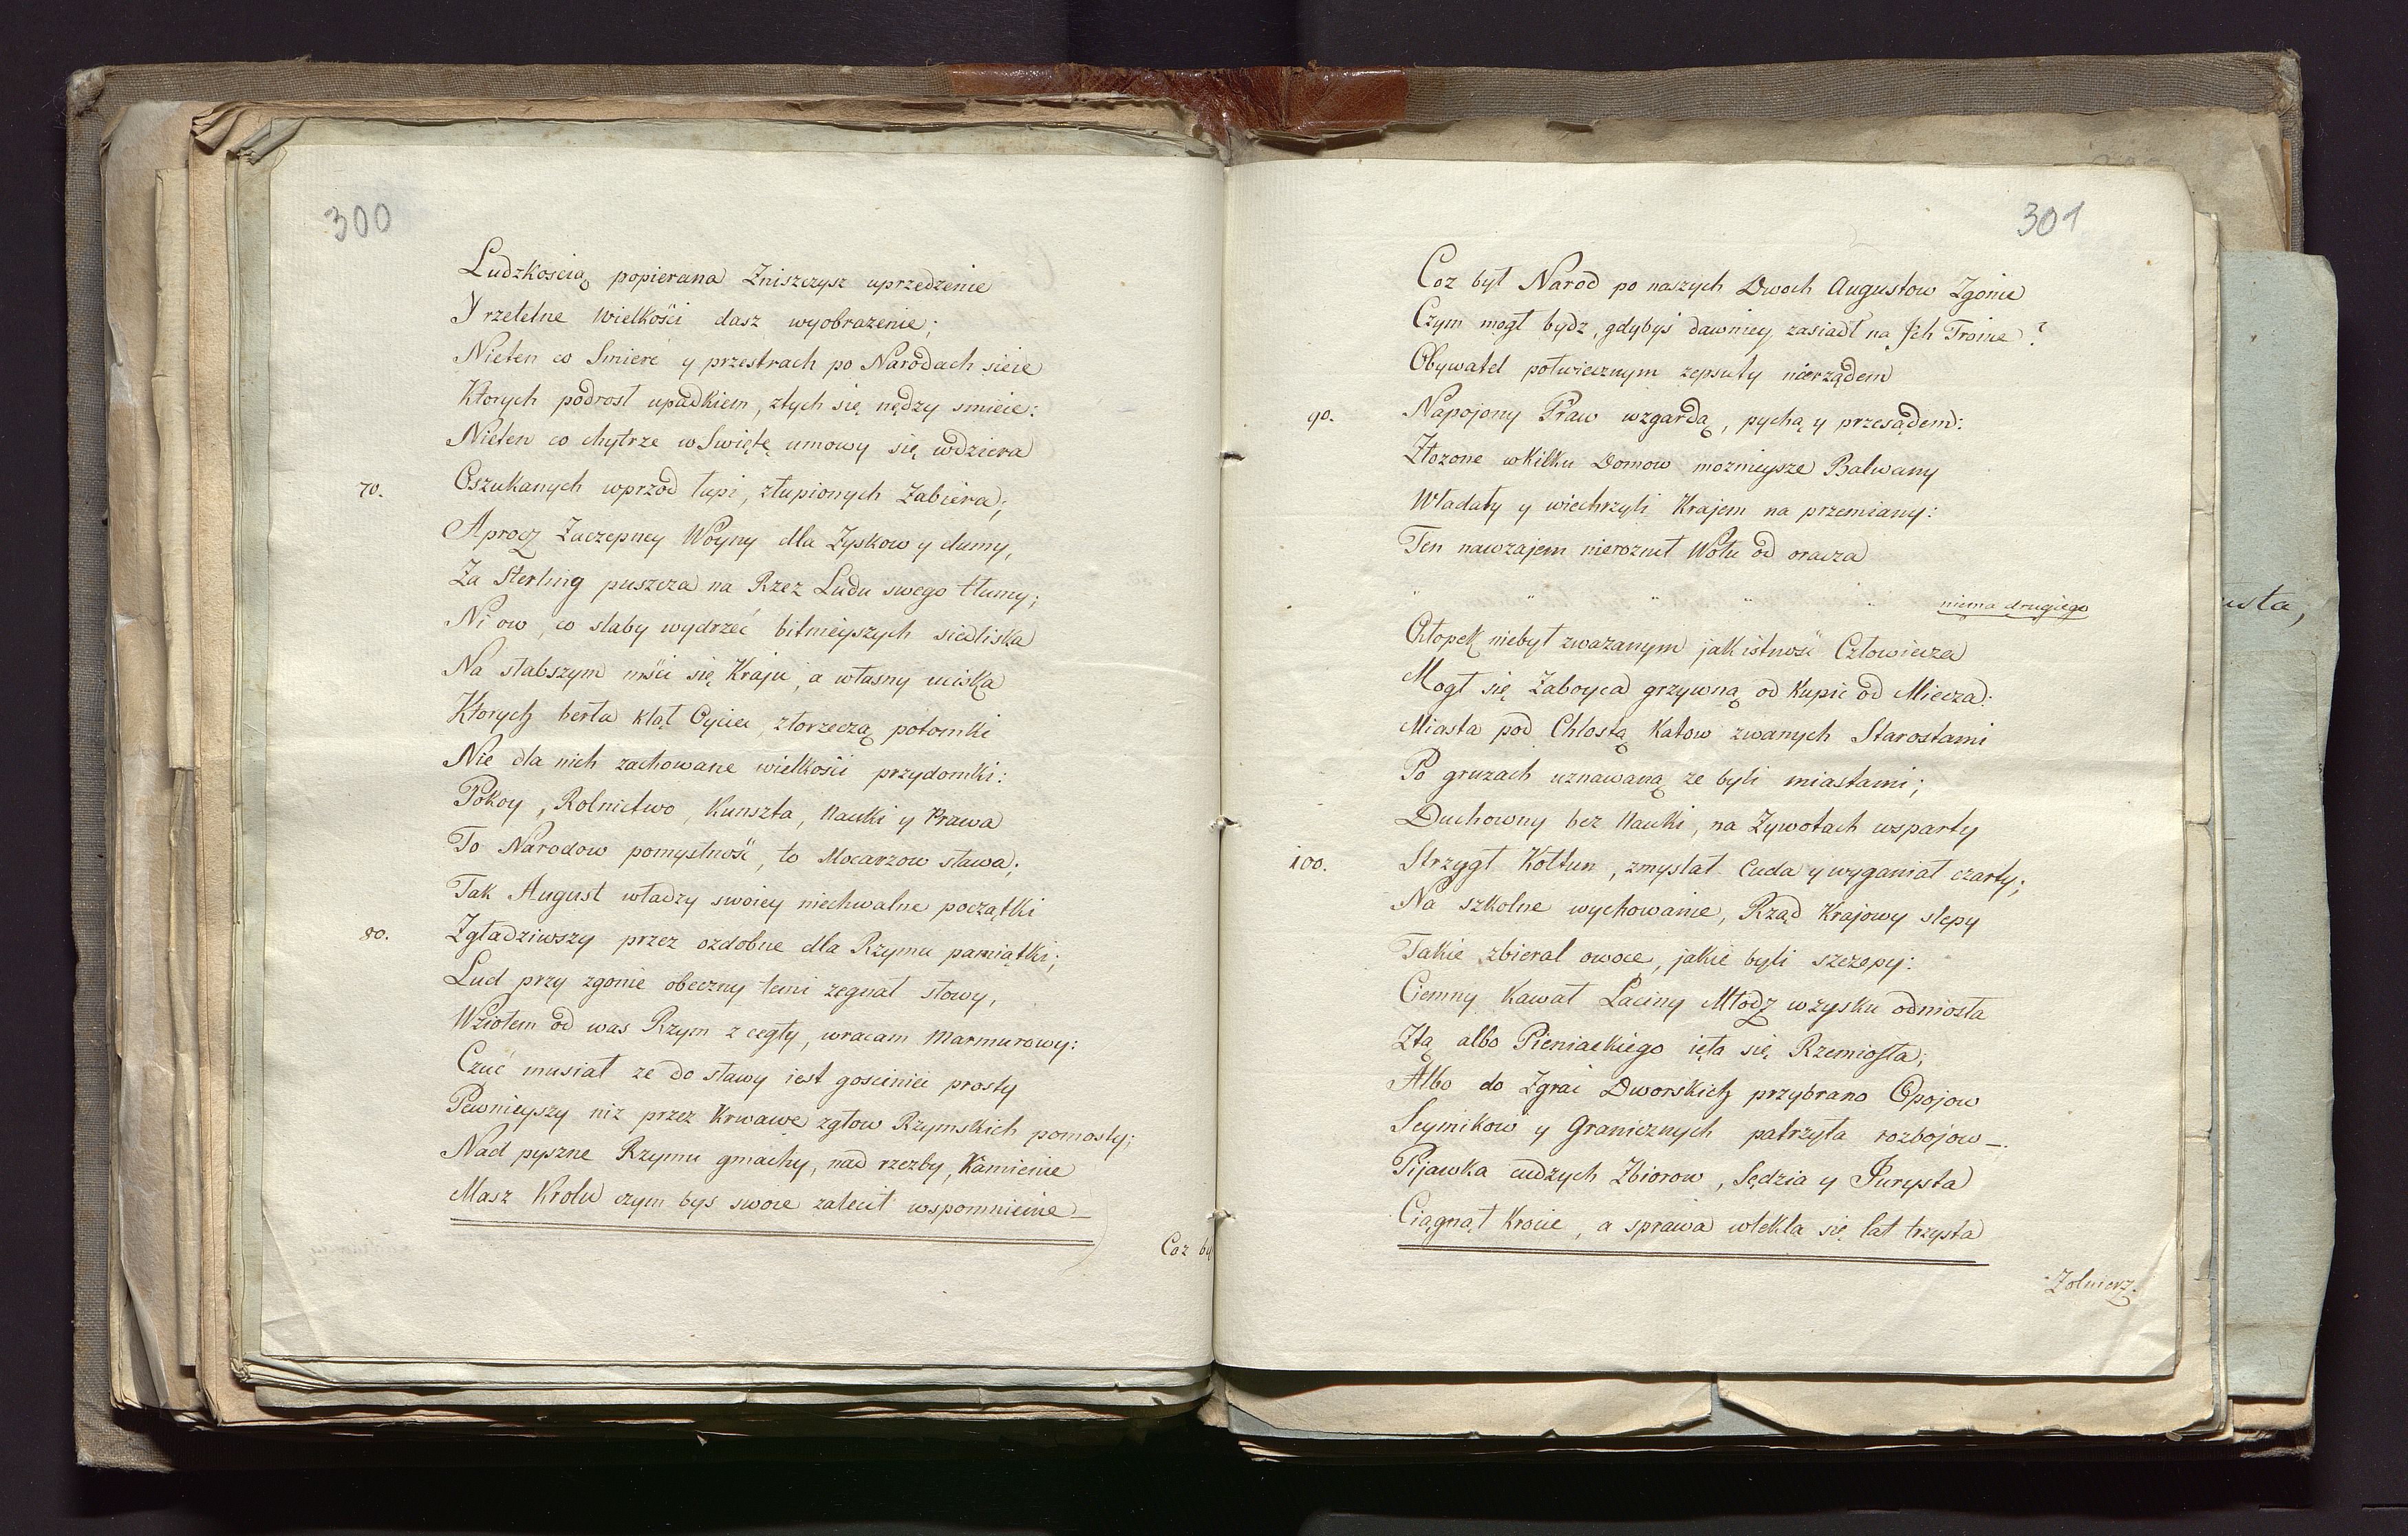 300
Ludzkoscią popierana Zniszczysz uprzedzenie
Y rzetelne Wielkości dasz wyobrazenie;
Nieten co Smierć y przestrach po Narodach sieie
Ktorych podrost upadkiem, złych się nędzy smieie:
Nieten co chytrze w Swiętę umowy się wdziera
70. Oszukanych wprzod łupi, złupionych Zabiera;
A procz Zaczepney Woyny dla Zyskow y dumy,
Za Sterling puszcza na Rzez Ludu swego tłumy;
Ni ow, co słaby wydrzeć bitnieyszych siedliska
Na słabszym mści się Kraju, a własny uciska
Ktorych berła kląt Oyciec, złorzeczą potomki
Nie dla nich zachowane wielkości przydomki:
Pokoy, Rolnictwo, Kunszta, Nauki y Prawa
To Narodow pomyslność, to Mocarzow sława;
Tak August władzy swoiey niechwalne początki
80. Zgładziwszy przez ozdobne dla Rzymu pamiątki;
Lud przy zgonie obeczny temi zegnał słowy,
Wziołem od was Rzym z cegły, wracam Marmurowy:
Czuć musiał ze do sławy iest gosciniec prosty
Pewnieyszy niz przez Krwawe zgłow Rzymskich pomosty;
Nad pyszne Rzymu gmachy, nad rzezby, Kamienie
Masz Krolu czym bys swoie zalecił wspomnienie_
Coz by
301
Coz był Narod po naszych Dwoch Augustow Zgonie
Czym mogł bydz, gdybyś dawniey zasiadł na Jch Tronie?
Obywatel połwiecznym zepsuty nierządem
90. Napojony Praw wzgardą, pychą y przesądem:
Złozone w Kilku Domow moznieysze Bałwany
Władały y wiechrzyli Krajem na przemiany:
Ten nawzajem nieroznił Wołu od oracza
" " " " " niema drugiego
Chłopek niebył zwazanym jak istność Człowiecza
Mogł się Zaboyca grzywną od Kupić od Miecza:
Miasta pod Chłostą Katow zwanych Starostami
Po gruzach uznawaną ze byli miastami;
Duchowny bez Nauki, na Zywotach wsparty
100. Strzygł Kołtun, zmyslał Cuda y wyganiał czarty;
Na szkolne wychowanie, Rząd Krajowy slepy
Takie zbierał owoce, jakie byli szczepy:
Ciemny Kawał Laciny Młodz wzysku odniosła
Złą albo Pieniackiego ięła się Rzemiosła;
Albo do Zgrai Dworskich przybrano Opojow
Seymikow y Granicznych patrzyła rozbojow_.
Pijawka cudzych Zbiorow, Sędzia y Jurysta
Ciągnął Krocie, a sprawa wlekła się lat trzysta
Zolnierz.